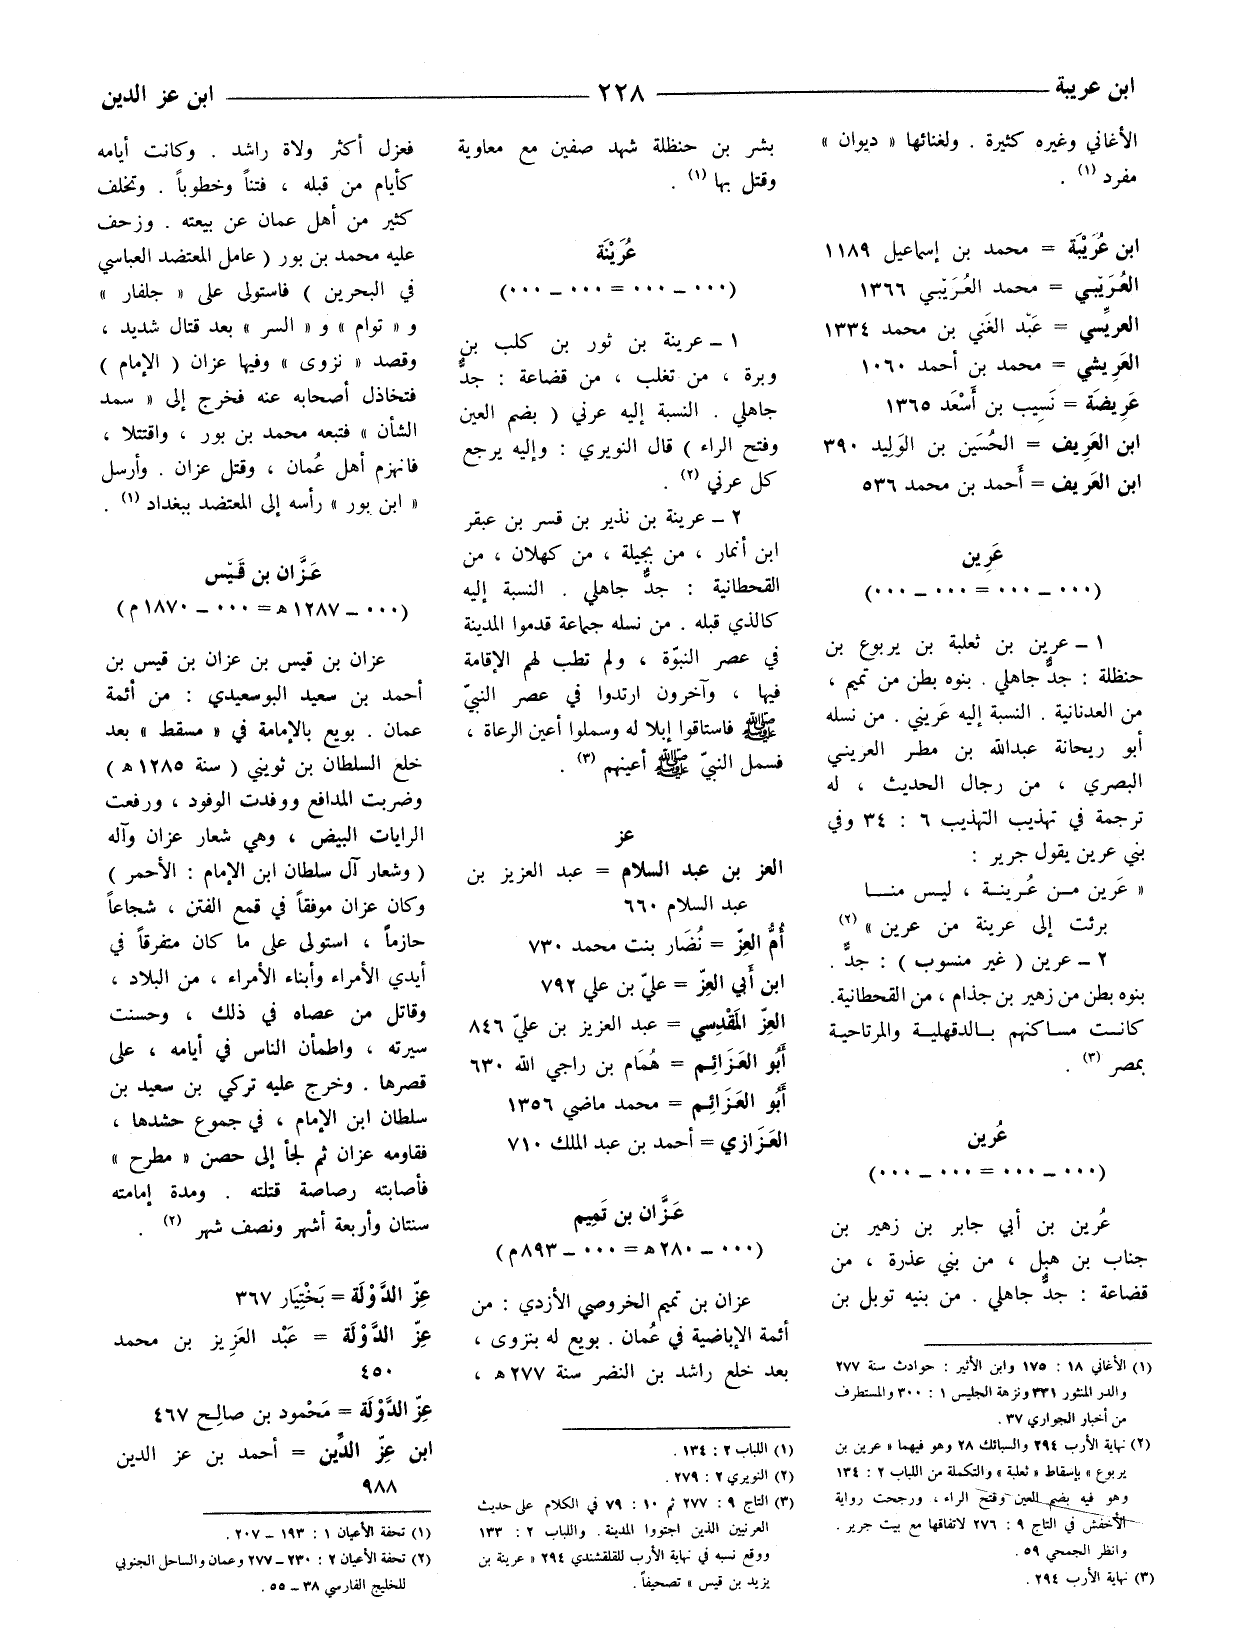 ابن عريبة ٢٢٨ ابن عز الدين
الأغاني وغيره كثيرة . ولغنائها « ديوان »
مفرد (١) .
ابن عُرَيْبَة = محمد بن إسماعيل ١١٨٩
العُرَيِّبي = محمد العُرَيِّبي ١٣٦٦
العريِّسي = عَبْد الغَني بن محمد ١٣٣٤
العَرِيشي = محمد بن أحمد ١٠٦٠
عَرِيضَة = نَسِيب بن أَسْعَد ١٣٦٥
ابن العَرِيف = الحُسَين بن الوَلِيد ٣٩٠
ابن العَرِيف = أَحمد بن محمد ٥٣٦
عَرِين
(٠٠٠ – ٠٠٠ = ٠٠٠ – ٠٠٠)
١ – عرين بن ثعلبة بن يربوع بن
حنظلة : جدٌّ جاهلي . بنوه بطن من تميم ،
من العدنانية . النسبة إليه عَريني . من نسله
أبو ريحانة عبدالله بن مطر العريني
البصري ، من رجال الحديث ، له
ترجمة في تهذيب التهذيب ٦ : ٣٤ وفي
بني عرين يقول جرير :
« عَرين مـن عُرينـة ، ليـس منـا
برئت إلى عرينة من عرين » (٢)
٢ – عرين ( غير منسوب ) : جدٌّ .
بنوه بطن من زهير بن جذام ، من القحطانية.
كانت مساكنهم بـالدقهلية والمرتاحية
بمصر (٣) .
عُرين
(٠٠٠ – ٠٠٠ = ٠٠٠ – ٠٠٠)
عُرين بن أبي جابر بن زهير بن
جناب بن هبل ، من بني عذرة ، من
قضاعة : جدٌّ جاهلي . من بنيه توبل بن
(١) الأغاني ١٨ : ١٧٥ وابن الأثير : حوادث سنة ٢٧٧
والدر المنثور ٣٣١ ونزهة الجليس ١ : ٣٠٠ والمستطرف
من أخبار الجواري ٣٧ .
(٢) نهاية الأرب ٢٩٤ والسبائك ٢٨ وهو فيهما « عرين بن
يربوع » بإسقاط « ثعلبة » والتكملة من اللباب ٢ : ١٣٤
وهو فيه بضم العين وفتح الراء ، ورجحت رواية
الأخفش في التاج ٩ : ٢٧٦ لاتفاقها مع بيت جرير .
وانظر الجمحي ٥٩ .
(٣) نهاية الأرب ٢٩٤ .
بشر بن حنظلة شهد صفين مع معاوية
وقتل بها (١) .
عُرَيْنَة
(٠٠٠ – ٠٠٠ = ٠٠٠ – ٠٠٠)
١ – عرينة بن ثور بن كلب بن
وبرة ، من تغلب ، من قضاعة : جدٌّ
جاهلي . النسبة إليه عرني ( بضم العين
وفتح الراء ) قال النويري : وإليه يرجع
كل عرني (٢) .
٢ – عرينة بن نذير بن قسر بن عبقر
ابن أنمار ، من بجيلة ، من كهلان ، من
القحطانية : جدٌّ جاهلي . النسبة إليه
كالذي قبله . من نسله جماعة قدموا المدينة
في عصر النبوّة ، ولم تطب لهم الإقامة
فيها ، وآخرون ارتدوا في عصر النبيّ
ﷺ فاستاقوا إبلا له وسملوا أعين الرعاة ،
فسمل النبيّ ﷺ أعينهم (٣) .
عز
العز بن عبد السلام = عبد العزيز بن
عبد السلام ٦٦٠
أُمُّ العِزّ = نُضَار بنت محمد ٧٣٠
ابن أَبي العِزّ = عليّ بن علي ٧٩٢
العِزّ المَقْدِسي = عبد العزيز بن عليّ ٨٤٦
أَبُو العَزَائِم = هُمَام بن راجي الله ٦٣٠
أَبُو العَزَائِم = محمد ماضي ١٣٥٦
العَزَازي = أحمد بن عبد الملك ٧١٠
عَزَّان بن تَمِيم
(٠٠٠ – ٢٨٠ هـ = ٠٠٠ – ٨٩٣ م)
عزان بن تميم الخروصي الأزدي : من
أئمة الإباضية في عُمان . بويع له بنزوى ،
بعد خلع راشد بن النضر سنة ٢٧٧ هـ ،
(١) اللباب ٢ : ١٣٤ .
(٢) النويري ٢ : ٢٧٩ .
(٣) التاج ٩ : ٢٧٧ ثم ١٠ : ٧٩ في الكلام على حديث
العرنيين الذين اجتووا المدينة . واللباب ٢ : ١٣٣
ووقع نسبه في نهاية الأرب للقلقشندي ٢٩٤ « عرينة بن
يزيد بن قيس » تصحيفاً .
فعزل أكثر ولاة راشد . وكانت أيامه
كأيام من قبله ، فتناً وخطوباً . وتخلف
كثير من أهل عمان عن بيعته . وزحف
عليه محمد بن بور ( عامل المعتضد العباسي
في البحرين ) فاستولى على « جلفار »
و « توام » و « السر » بعد قتال شديد ،
وقصد « نزوى » وفيها عزان ( الإمام )
فتخاذل أصحابه عنه فخرج إلى « سمد
الشأن » فتبعه محمد بن بور ، واقتتلا ،
فانهزم أهل عُمان ، وقتل عزان . وأرسل
« ابن بور » رأسه إلى المعتضد ببغداد (١) .
عَزَّان بن قَيْس
(٠٠٠ – ١٢٨٧ هـ = ٠٠٠ – ١٨٧٠ م)
عزان بن قيس بن عزان بن قيس بن
أحمد بن سعيد البوسعيدي : من أئمة
عمان . بويع بالإمامة في « مسقط » بعد
خلع السلطان بن ثويني ( سنة ١٢٨٥ هـ )
وضربت المدافع ووفدت الوفود ، ورفعت
الرايات البيض ، وهي شعار عزان وآله
( وشعار آل سلطان ابن الإمام : الأحمر )
وكان عزان موفقاً في قمع الفتن ، شجاعاً
حازماً ، استولى على ما كان متفرقاً في
أيدي الأمراء وأبناء الأمراء ، من البلاد ،
وقاتل من عصاه في ذلك ، وحسنت
سيرته ، واطمأن الناس في أيامه ، على
قصرها . وخرج عليه تركي بن سعيد بن
سلطان ابن الإمام ، في جموع حشدها ،
فقاومه عزان ثم لجأ إلى حصن « مطرح »
فأصابته رصاصة قتلته . ومدة إمامته
سنتان وأربعة أشهر ونصف شهر (٢) .
عِزّ الدَّوْلَة = بَخْتِيَار ٣٦٧
عِزّ الدَّوْلَة = عَبْد العَزِيز بن محمد
٤٥٠
عِزّ الدَّوْلَة = مَحْمُود بن صالِح ٤٦٧
ابن عِزّ الدِّين = أحمد بن عز الدين
٩٨٨
(١) تحفة الأعيان ١ : ١٩٣ – ٢٠٧ .
(٢) تحفة الأعيان ٢ : ٢٣٠ – ٢٧٧ وعمان والساحل الجنوبي
للخليج الفارسي ٣٨ – ٥٥ .